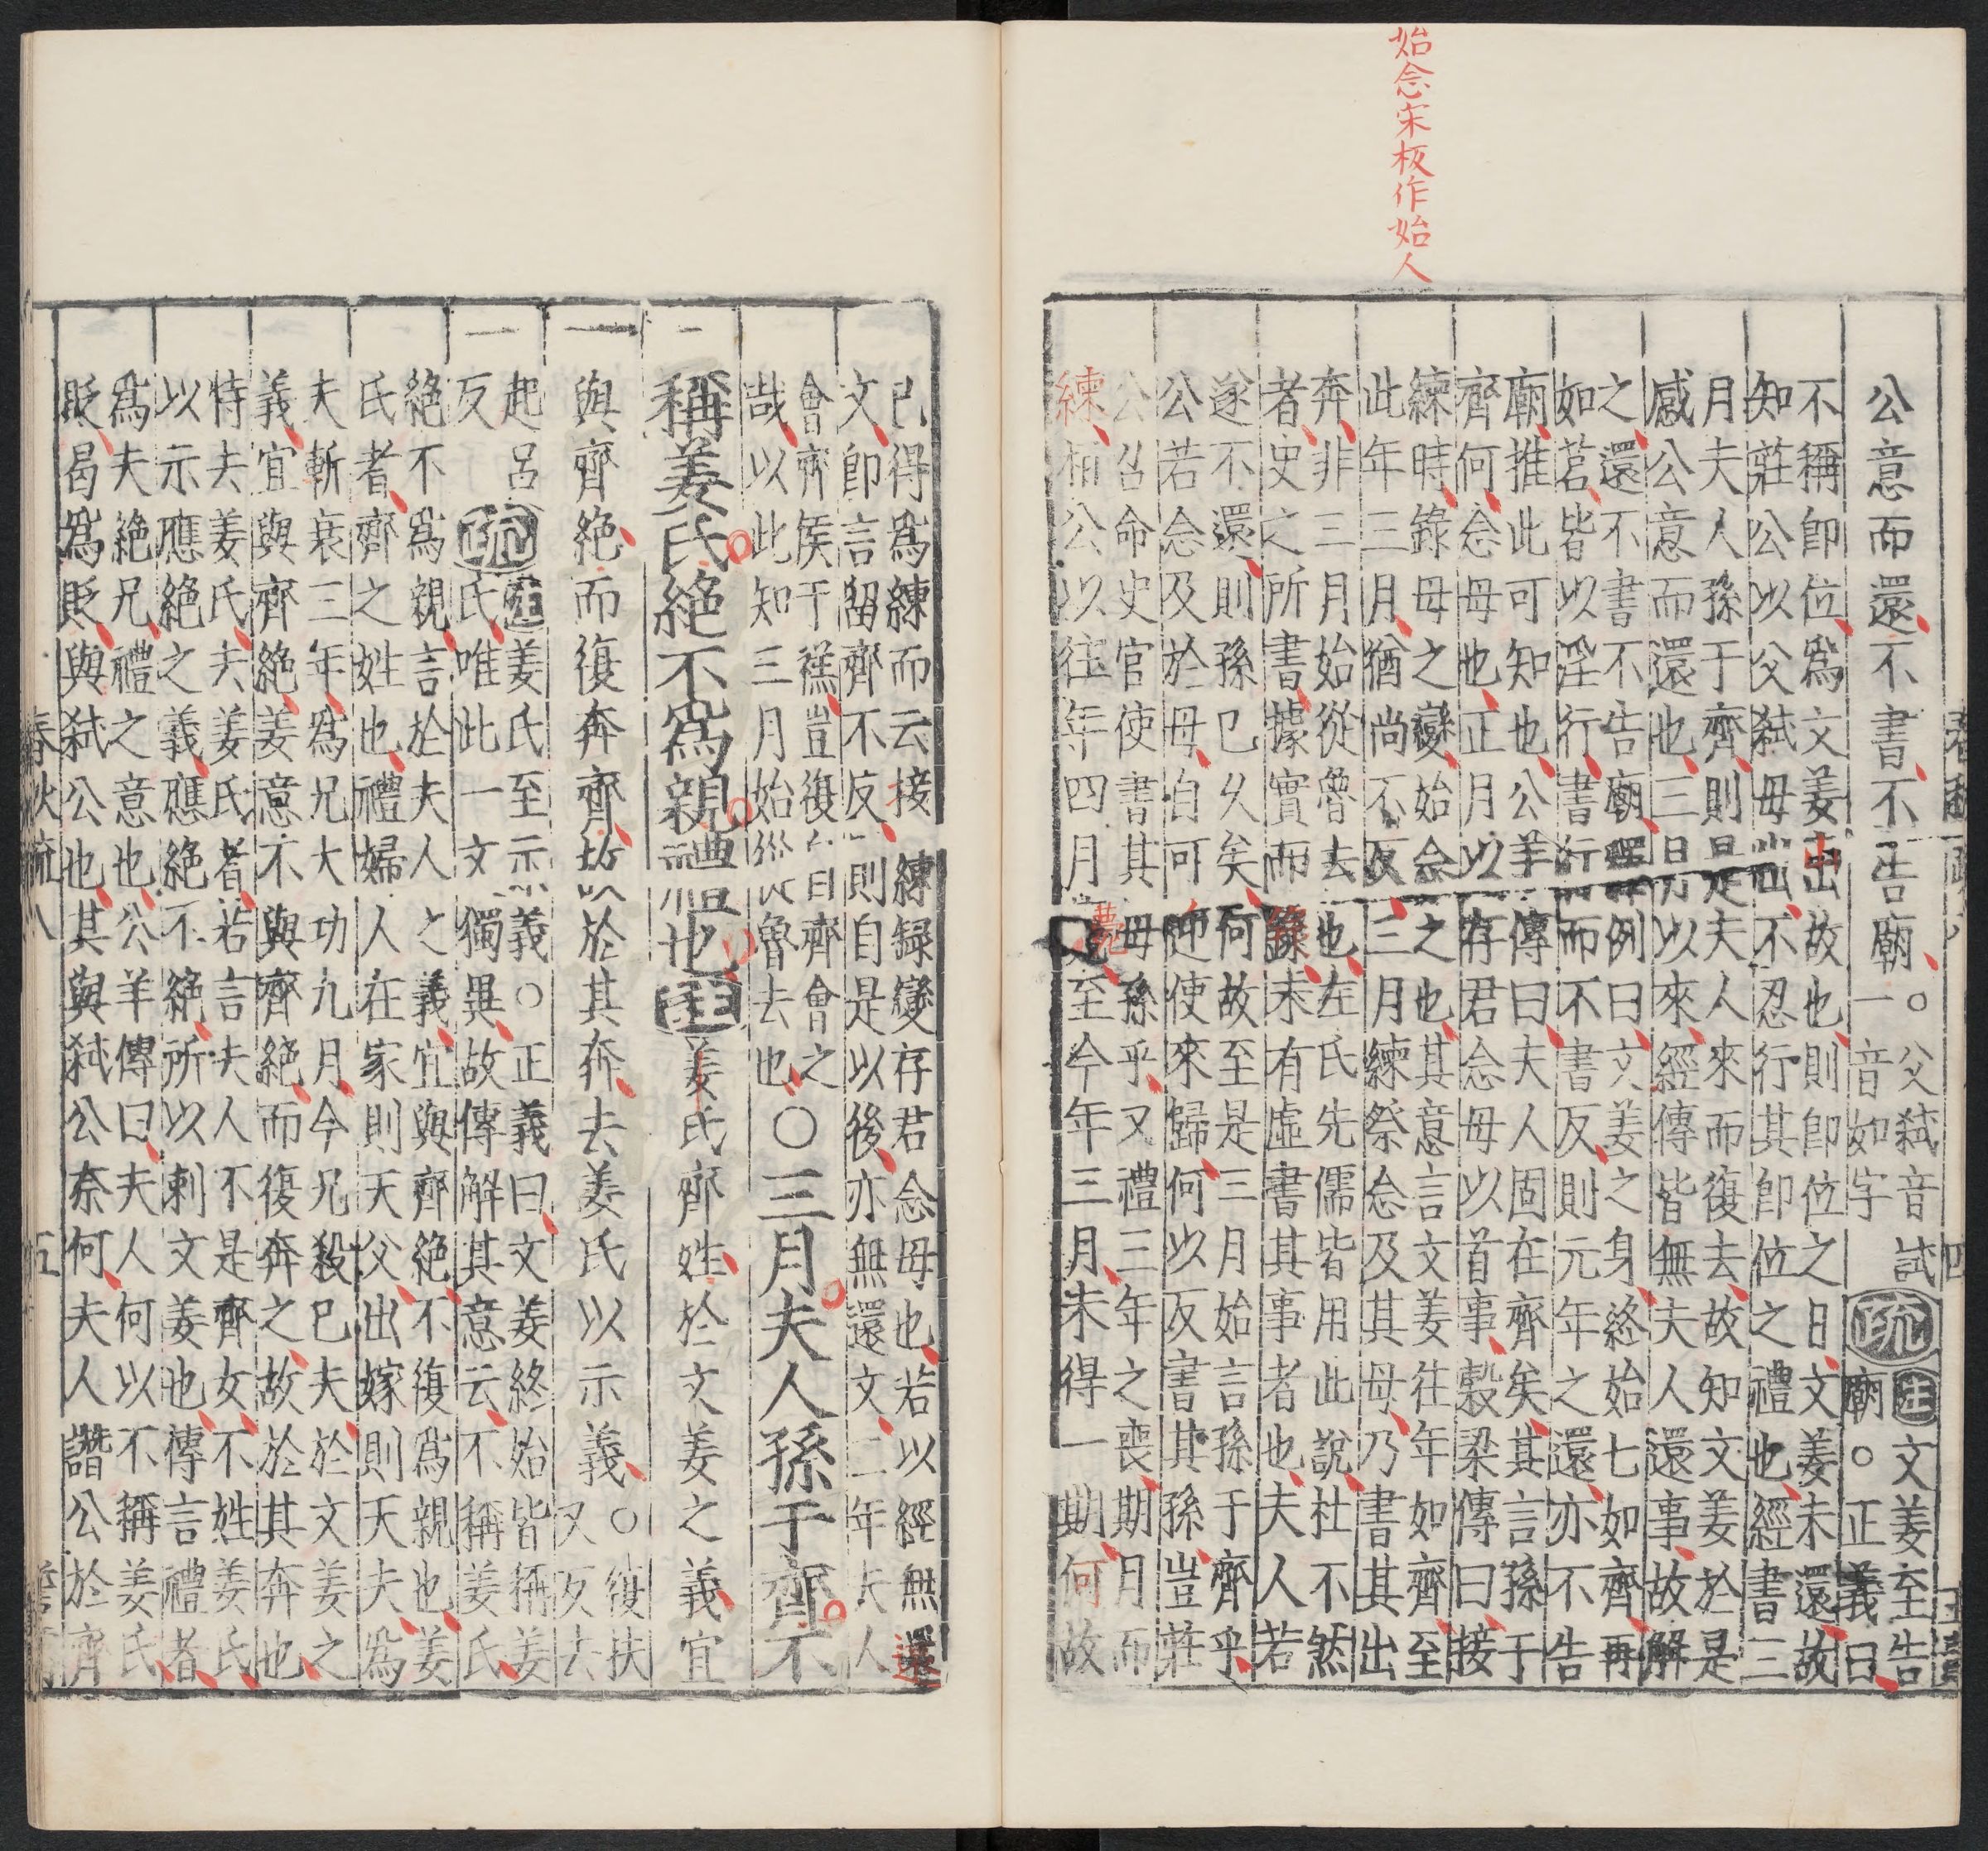 始念宋板作始人
公意而還不書不告廟。
父弒音試
一音如字
疏
注文姜至告
廟。正義曰
不稱即位爲文姜出故也則即位之日文姜未還故
知莊公以父弒母出不忍行其即位之禮也經書三
月夫人孫于齊則是夫人來而復去故知文姜於是
感公意而還也三月以來經傳皆無夫人還事故解
之還不書不告廟釋例曰文姜之身終始七如齊再
如莒皆以淫行書行而不書反則元年之還亦不告
廟推此可知也公羊傳曰夫人固在齊矣其言孫于
齊何念母也正月以存君念母以首事榖梁傳曰接
練時錄母之變始念之也其意言文姜往年如齊至
此年三月猶尚不反三月練祭念及其母乃書其出
奔非三月始從魯去也左氏先儒皆用此說杜不然
者史之所書據實而錄未有虛書其事者也夫人若
遂不還則孫巳久矣何故至是三月始言孫于齊乎
公若念及於母自可迎使來歸何以反書其孫豈莊
公召命史官使書其母孫乎又禮三年之喪期月而
練桓公以往年四月薨至今年三月未得一期何故
已得爲練而云接練錄變存君念母也若以經無還
文即言留齊不反則自是以後亦無還文二年夫人
會齊侯于禚豈復自齊會之
哉以此知三月始從魯去也
〇三月夫人孫于齊不
稱姜氏絕不爲親禮也注姜氏齊姓於文姜之義宜
與齊絕而復奔齊故於其奔去姜氏以示義
〇復扶
又反去
起呂
反
疏
注姜氏至示義○正義曰文姜終始皆稱姜
氏唯此一文獨異故傳解其意云不稱姜氏
絕不爲親言於夫人之義宜與齊絕不復爲親也姜
氏者齊之姓也禮婦人在家則天父出嫁則天夫爲
夫斬衰三年爲兄大功九月今兄殺巳夫於文姜之
義宜與齊絕姜意不與齊絕而復奔之故於其奔也
特去姜氏夫姜氏者若言夫人不是齊女不姓姜氏
以示應絕之義應絕不絕所以刺文姜也傳言禮者
爲夫絕兄禮之意也公羊傳曰夫人何以不稱姜氏
貶曷爲貶與弒公也其與弒公奈何夫人譖公於齊
春秋疏八 五